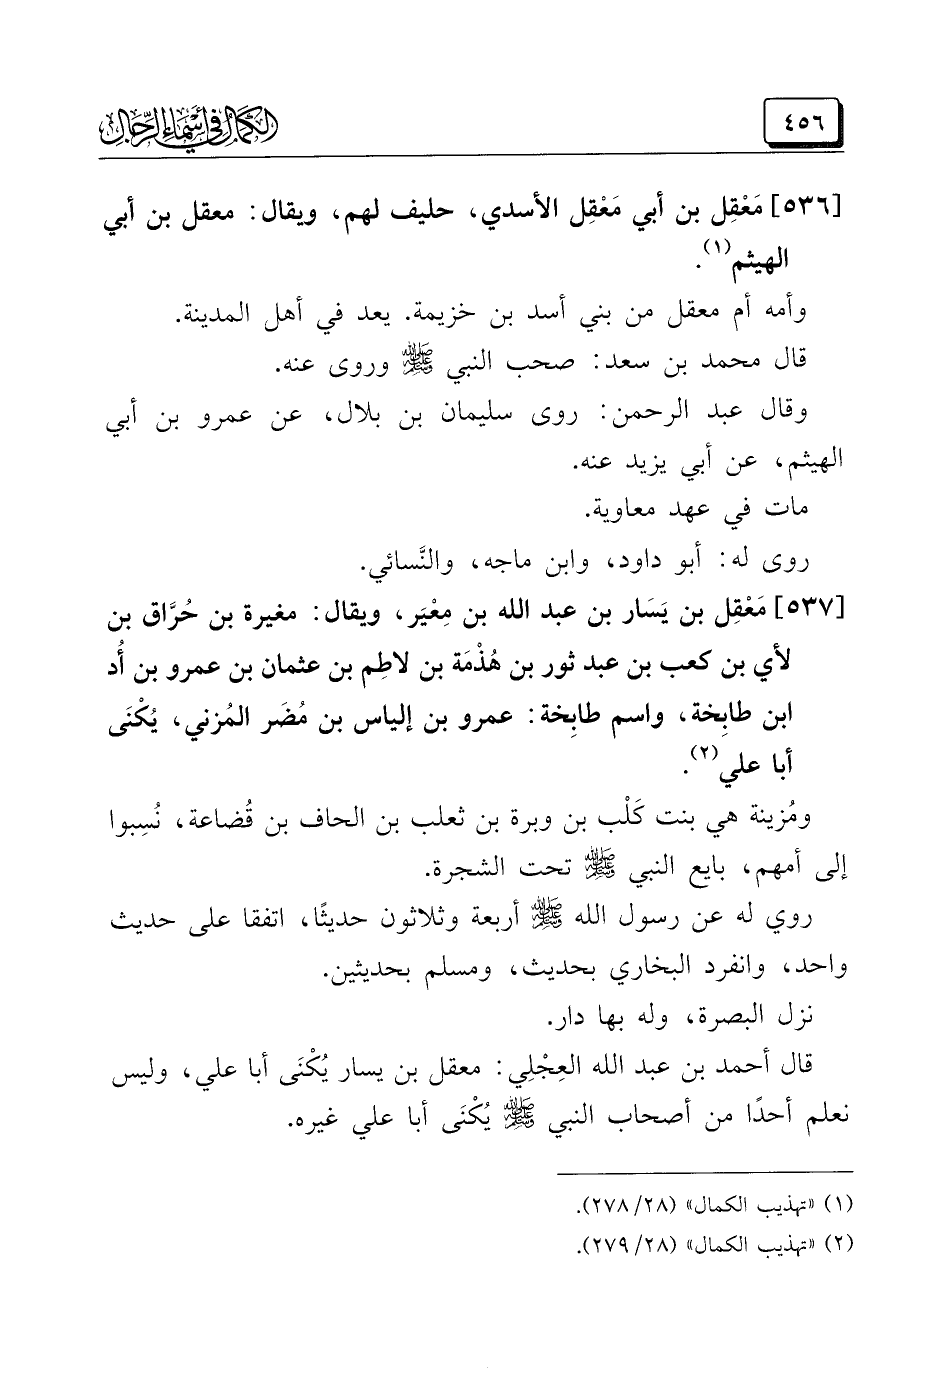 ٤٥٦
الكمال في أسماء الرجال
[٥٣٦] مَعْقِل بن أبي مَعْقِل الأسدي، حليف لهم، ويقال: معقل بن أبي
الهيثم(١).
وأمه أم معقل من بني أسد بن خزيمة. يعد في أهل المدينة.
قال محمد بن سعد: صحب النبي ﷺ وروى عنه.
وقال عبد الرحمن: روى سليمان بن بلال، عن عمرو بن أبي
الهيثم، عن أبي يزيد عنه.
مات في عهد معاوية.
روى له: أبو داود، وابن ماجه، والنَّسائي.
[٥٣٧] مَعْقِل بن يَسَار بن عبد الله بن مِعْيَر، ويقال: مغيرة بن حُرَّاق بن
لأي بن كعب بن عبد ثور بن هُذْمَة بن لاطِم بن عثمان بن عمرو بن أُد
ابن طابِخة، واسم طابِخة: عمرو بن إلياس بن مُضَر المُزني، يُكْنَى
أبا علي(٢).
ومُزينة هي بنت كَلْب بن وبرة بن ثعلب بن الحاف بن قُضاعة، نُسِبوا
إلى أمهم، بايع النبي ﷺ تحت الشجرة.
روي له عن رسول الله ﷺ أربعة وثلاثون حديثًا، اتفقا على حديث
واحد، وانفرد البخاري بحديث، ومسلم بحديثين.
نزل البصرة، وله بها دار.
قال أحمد بن عبد الله العِجْلِي: معقل بن يسار يُكْنَى أبا علي، وليس
نعلم أحدًا من أصحاب النبي ﷺ يُكْنَى أبا علي غيره.
(١) «تهذيب الكمال» (٢٨/ ٢٧٨).
(٢) «تهذيب الكمال» (٢٨/ ٢٧٩).